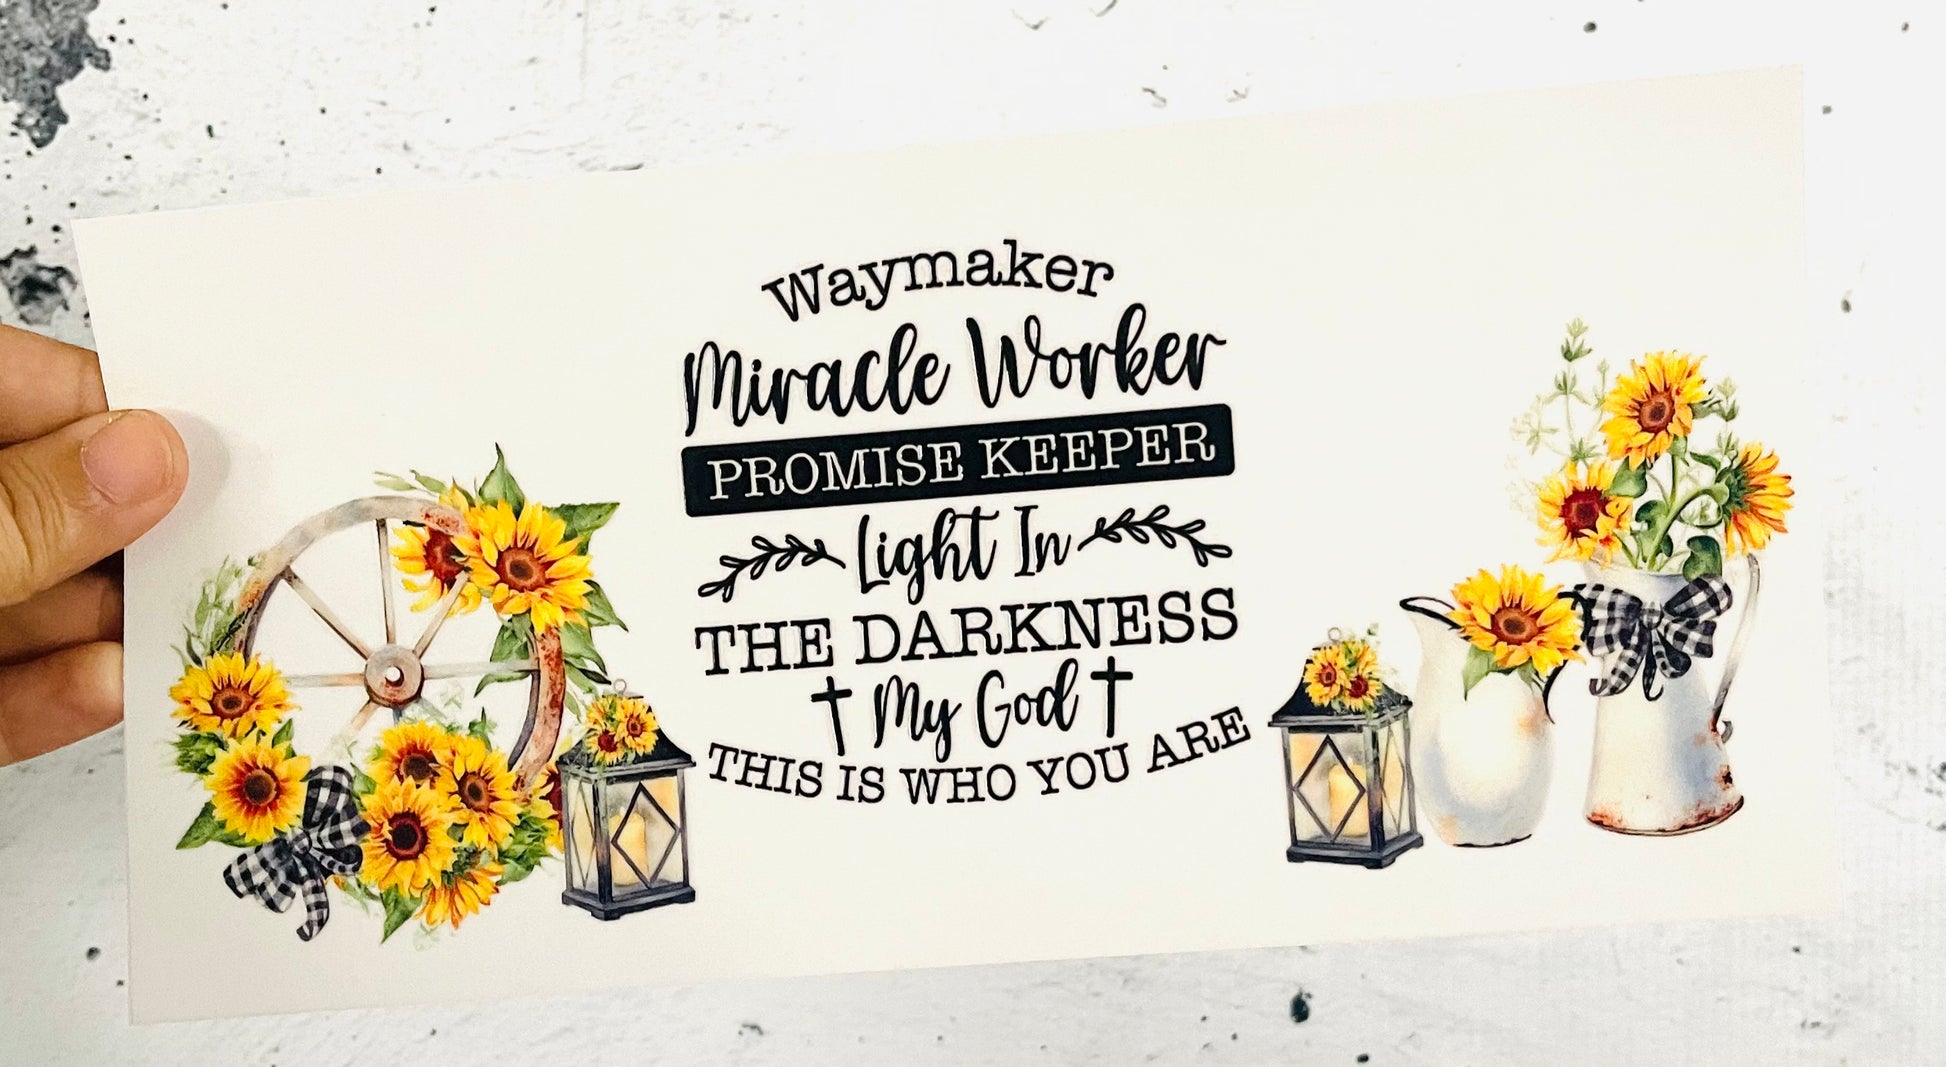 Waymaker
Miracle Worker
PROMISE KEEPER
Light In
THE DARKNESS
My God
THIS IS WHO YOU ARE